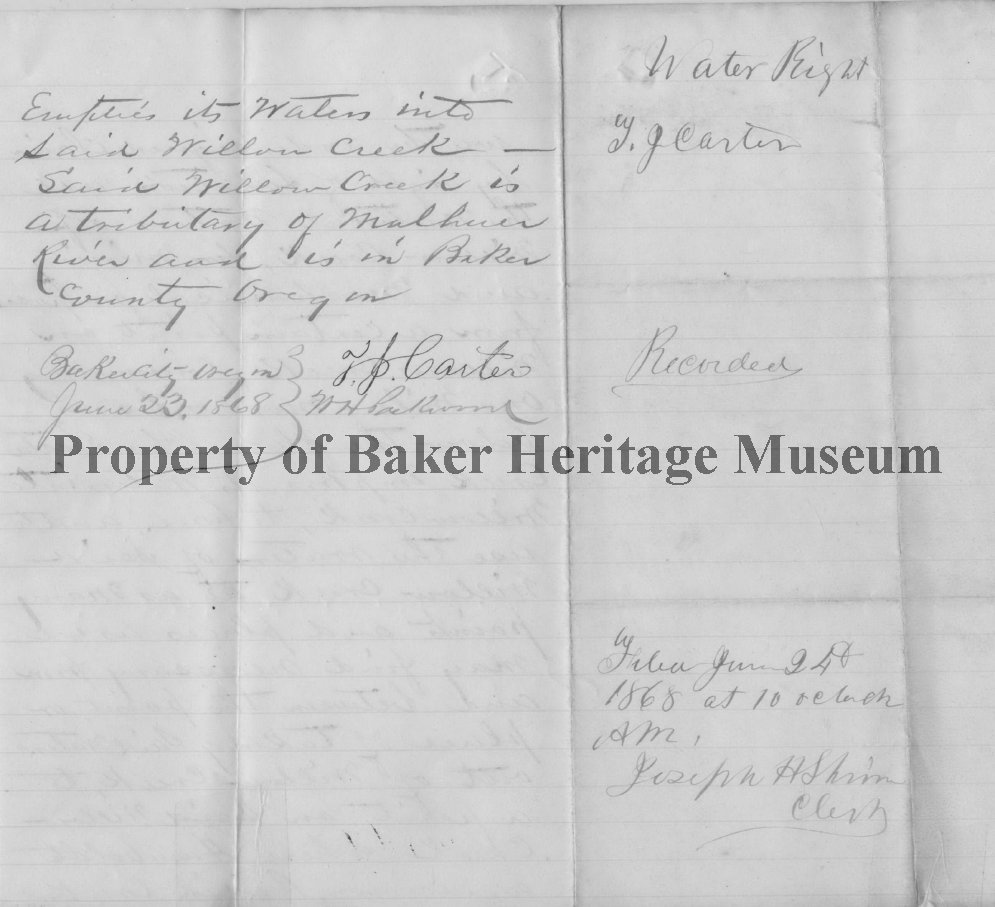 Empties its Waters into
Said Willow Creek —
Said Willow Creek is
a tributary of Malhuer
River and is in Baker
County Oregon
Baker City Oregon
June 23, 1868
T. J. Carter
W H Packwood
Water Right
T. J Carter
Recorded
Filed June 24th
1868 at 10 oclock
AM,
Joseph H Shinn
Clerk
Property of Baker Heritage Museum